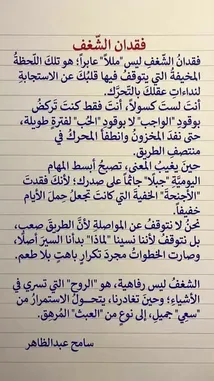 فقدان الشّغف
فقدانُ الشّغفِ ليسَ "مللاً" عابراً؛ هو تلكَ اللّحظةُ
المخيفةُ التي يتوقفُ فيها قلبُكَ عن الاستجابةِ
لنداءاتِ عقلكَ بالتّحرّك.
أنتَ لستَ كسولاً، أنتَ فقط كنتَ تركضُ
بوقودِ "الواجبِ" لا بوقودِ "الحُب" لفترةٍ طويلة،
حتى نفدَ المخزونُ وانطفأ المحركُ في
منتصفِ الطريق.
حينَ يغيبُ المعنى، تصبحُ أبسط المهام
اليوميّةِ "جبلاً" جاثماً على صدرك؛ لأنكَ فقدتَ
"الأجنحةَ" الخفيةَ التي كانت تجعلُ حِملَ الأيام
خفيفاً.
نحنُ لا نتوقفُ عن المواصلةِ لأنَّ الطّريقَ صعبٌ،
بل نتوقفُ لأننا نسينا "لماذا" بدأنا السيرَ أصلاً،
وصارت الخطواتُ مجردَ تكرارٍ باهتٍ بلا طعم.
الشغفُ ليس رفاهية، هو "الروح" التي تسري في
الأشياءِ؛ وحينَ تغادرنا، يتحـــولُ الاستمرارُ من
"سعيٍ" جميل، إلى نوعٍ من "العبث" المُرهِق.
سامح عبدالظاهر